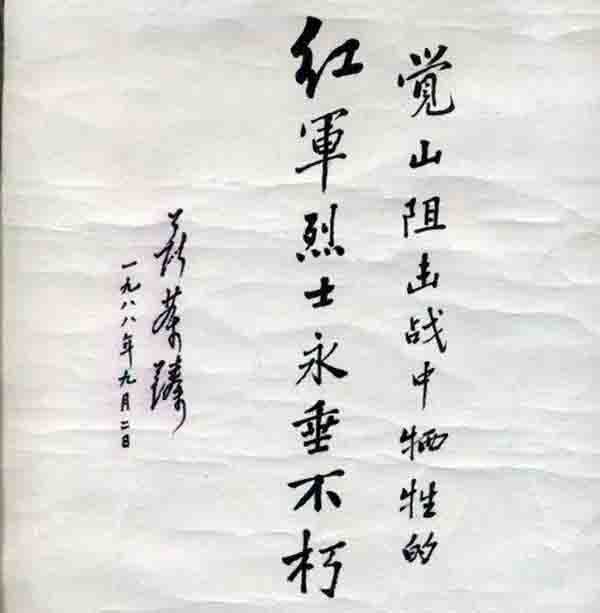 覺山阻击战中牺牲的
红軍烈士永垂不朽
聂荣臻
一九八八年九月二日